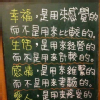 幸福,是用來感覺的,
而不是用來比較的。
生活,是用來經營的,
而不是用來計較的。
感情,是用來維繫的,
而不是用來考驗的。